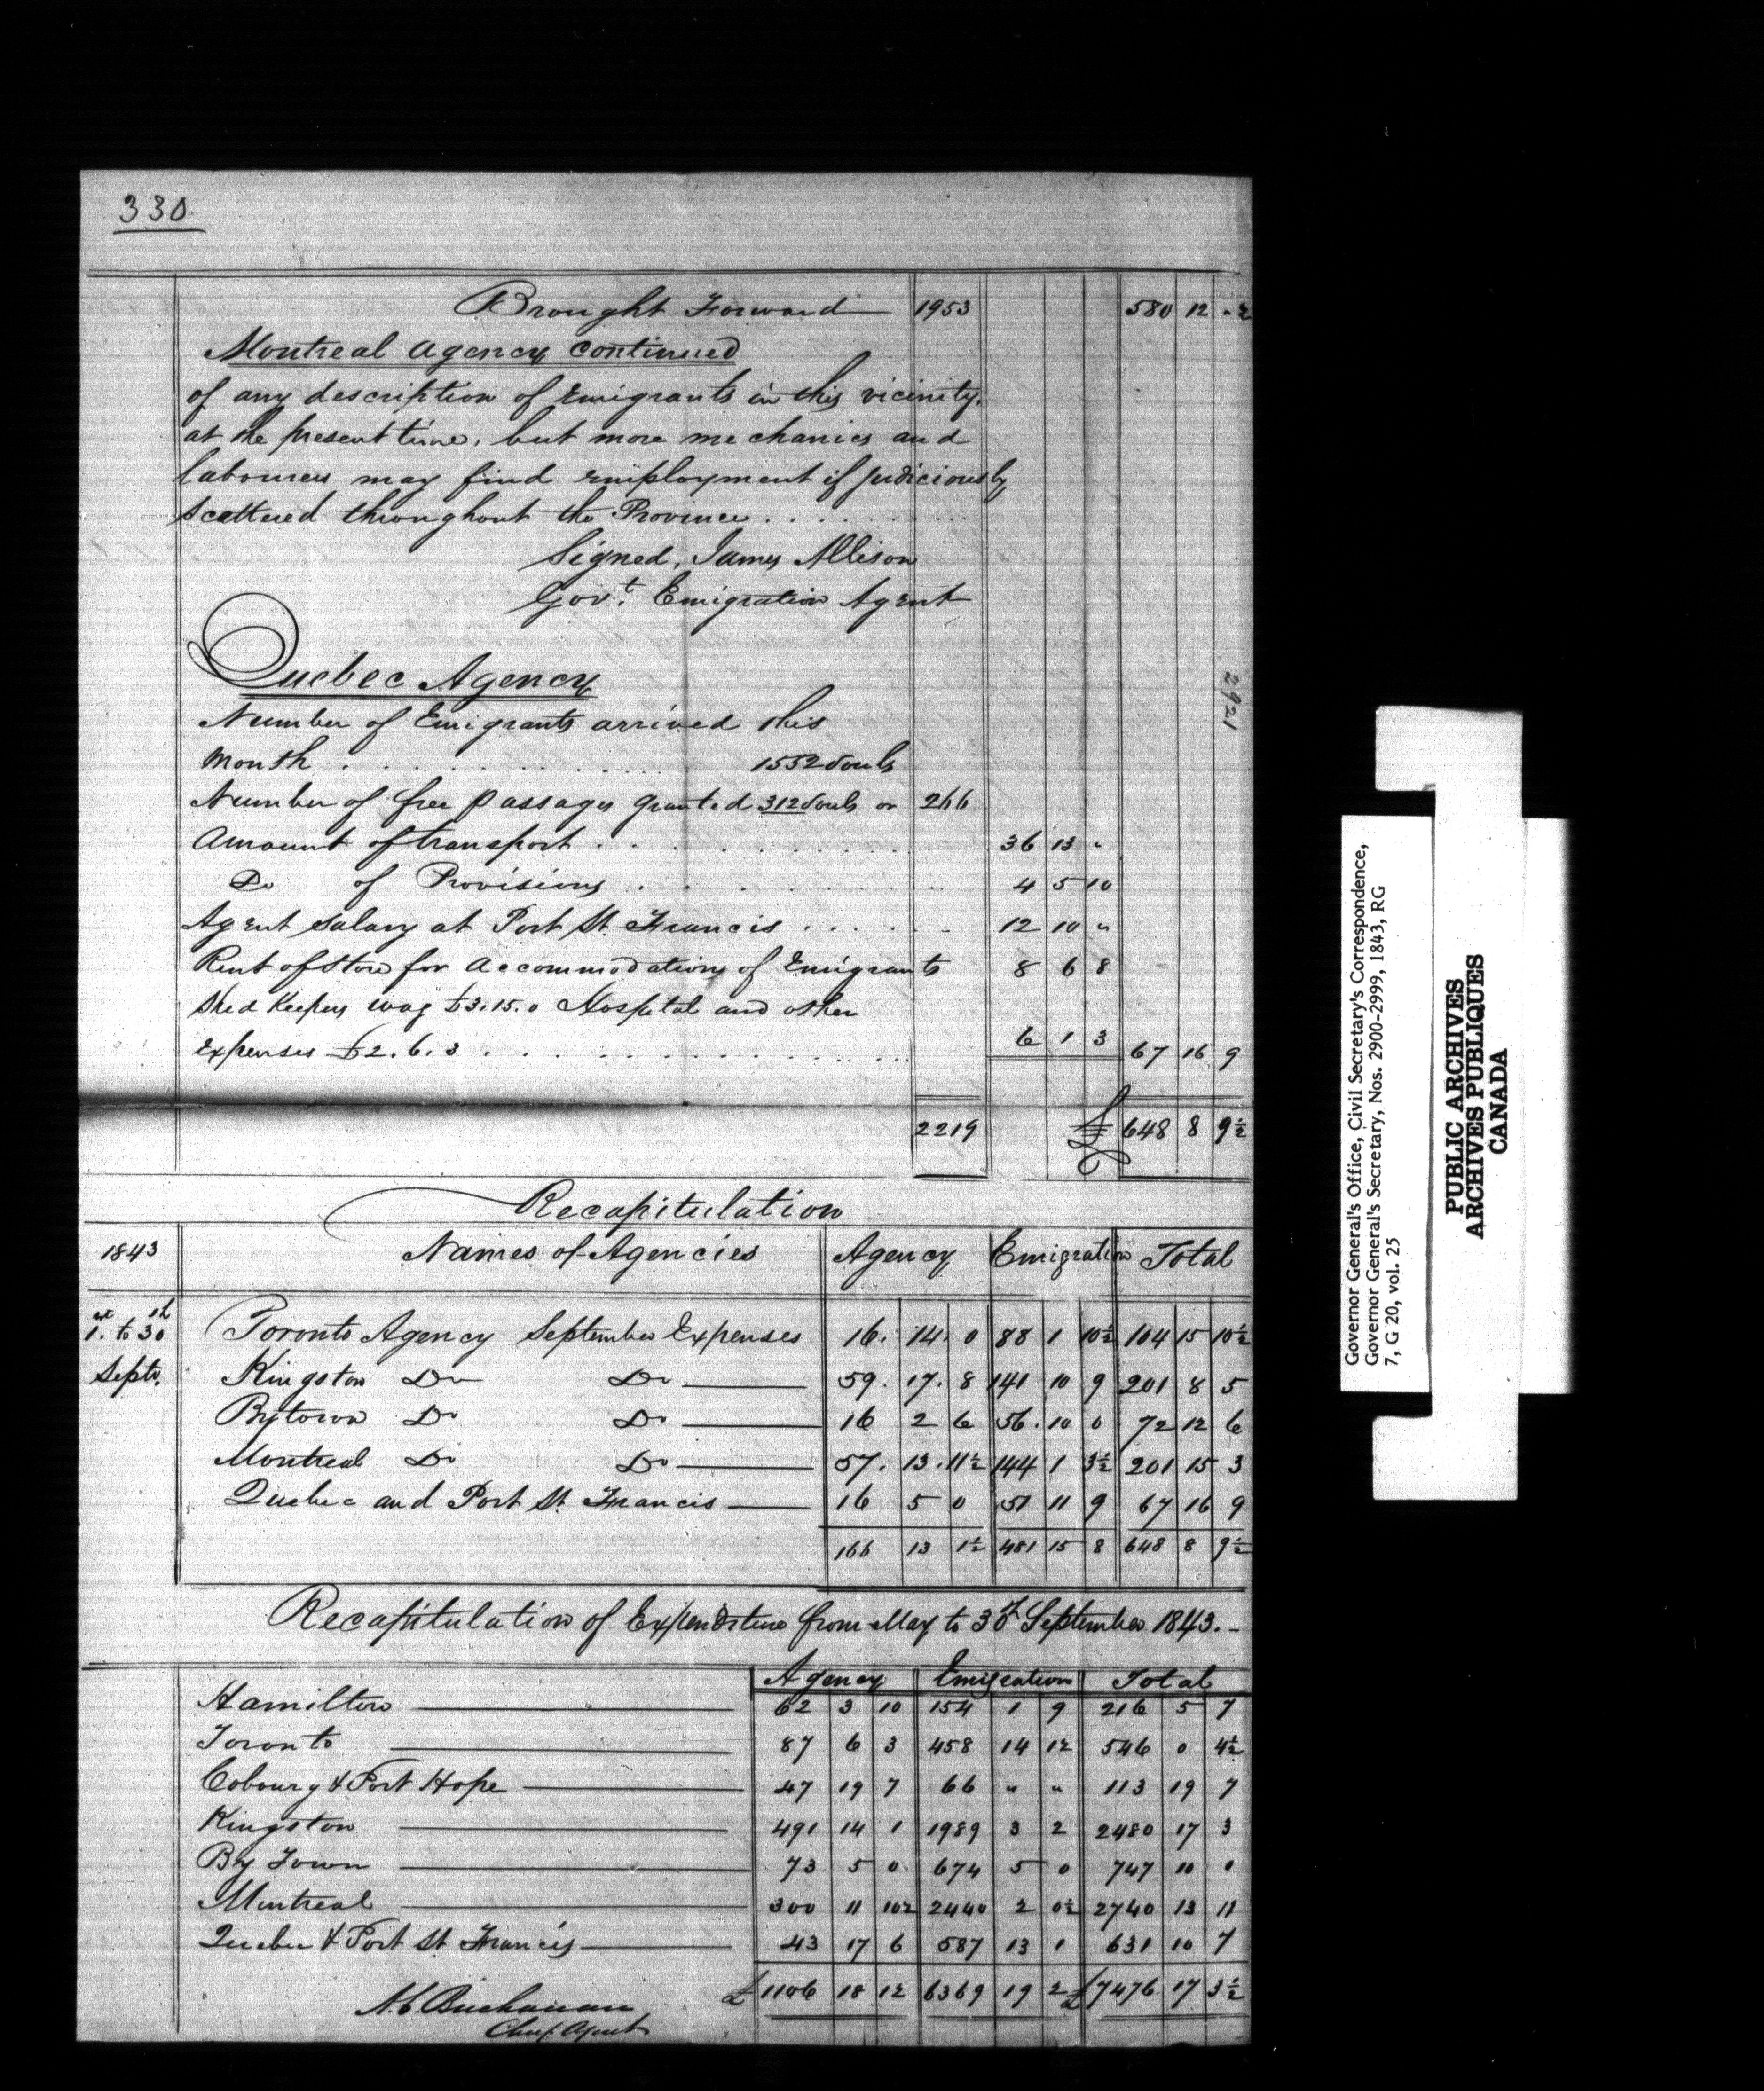 330
Brought Forward 1953 580 12 " ½
Montreal Agency Continued
of any description of Emigrants in this vicinity.
at the present time, but more mechanics and
labourers may find employment if judiciously
Scattered throughout the Province . . . . . .
Signed, James Allison
Govt. Emigration Agent
Quebec Agency
Number of Emigrants arrived this
Month . . . . . . . . 1552 Souls
Number of free passages granted 312 Souls or 266
Amount of transport . . . . . . . . 36 13 "
Do of Provisions . . . . . . . 4 5 10
Agent salary at Port St. Francis . . . . . . 12 10 "
Rent of Store for Accommodations of Emigrants 8 6 8
Shed Keepers wag £3.15.0 Hospital and other
Expenses £2.6.3 . . . . . . . . . . 6 1 3 67 16 9
2219 £ 648 8 9½
2921
Recapitulation
1843 Names of Agencies Agency Emigration Total
1st. to 30th Toronto Agency September Expenses 16. 14. 0 88 1 10½ 104 15 10½
Septr. Kingston Do Do 59. 17. 8 141 10 9 201 8 5
Bytown Do Do 16 2 6 56. 10 0 72 12 6
Montreal Do Do 57. 13. 11½ 144 1 3½ 201 15 3
Quebec and Port St. Francis 16 5 0 51 11 9 67 16 9
166 13 1½ 481 15 8 648 8 9½
Recapitulation of Expenditure from May to 30th September 1843. -
Agency Emigration Total
Hamilton 62 3 10 154 1 9 216 5 7
Toronto 87 6 3 458 14 1½ 546 0 4½
Cobourg & Port Hope 47 19 7 66 " " 113 19 7
Kingston 491 14 1 1989 3 2 2480 17 3
By Town 73 5 0 674 5 0 747 10 0
Montreal 300 11 10½ 2440 2 0½ 2740 13 11
Quebec & Port St Francis 43 17 6 587 13 1 631 10 7
£ 1106 18 1½ 6369 19 2 £ 7476 17 3½
A.C. Buchanan
Chief Agent
Governor General's Office, Civil Secretary's Correspondence,
Governor General's Secretary, Nos. 2900-2999, 1843, RG
7, G 20, vol. 25
PUBLIC ARCHIVES
ARCHIVES PUBLIQUES
CANADA